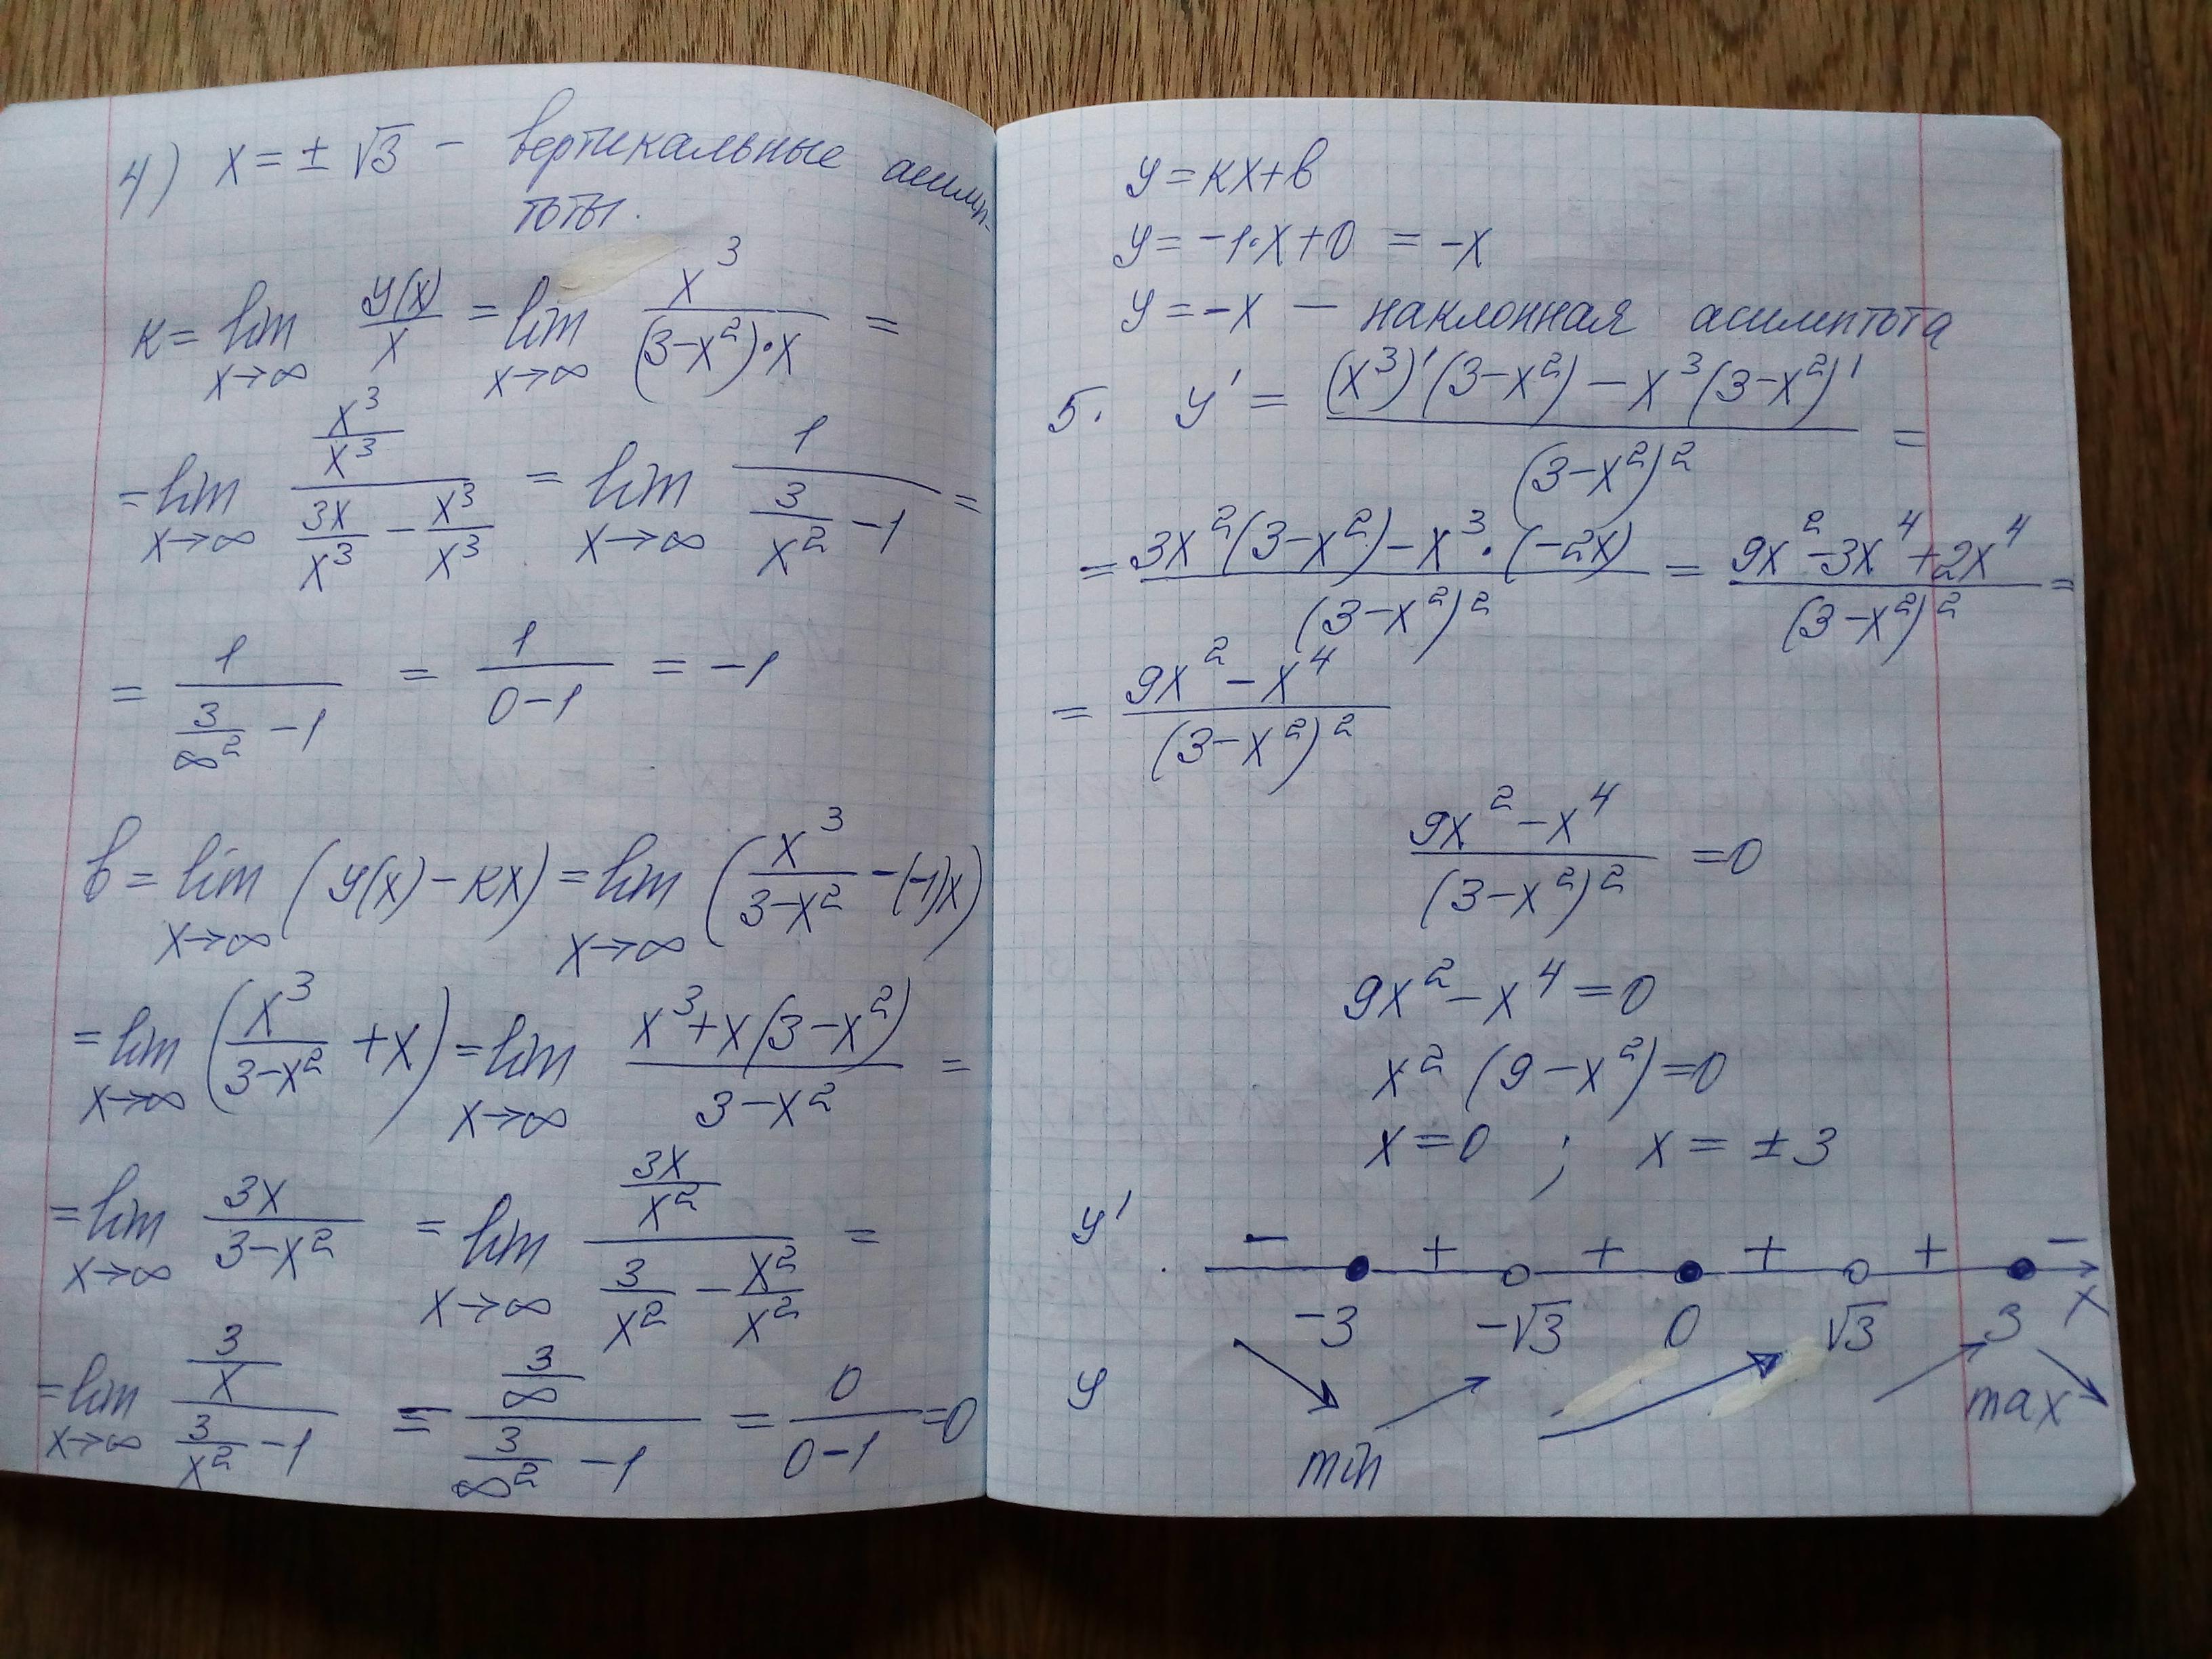 4) x = ± √3 – вертикальные асимп-
тоты.
к = lim x→∞ y(x)/x = lim x→∞ x³/((3-x²)·x) =
= lim x→∞ (x³/x³)/(3x/x³ - x³/x³) = lim x→∞ 1/(3/x² - 1) =
= 1/(3/∞² - 1) = 1/(0-1) = -1
в = lim x→∞ (y(x) - кx) = lim x→∞ (x³/(3-x²) - (-1)x)
= lim x→∞ (x³/(3-x²) + x) = lim x→∞ (x³+x(3-x²))/(3-x²) =
= lim x→∞ 3x/(3-x²) = lim x→∞ (3x/x²)/(3/x² - x²/x²) =
= lim x→∞ (3/x)/(3/x² - 1) = (3/∞)/(3/∞² - 1) = 0/(0-1) = 0
y = кx+в
y = -1·x+0 = -x
y = -x — наклонная асимптота
5. y' = ((x³)'(3-x²) - x³(3-x²)')/(3-x²)² =
= (3x²(3-x²) - x³·(-2x))/(3-x²)² = (9x²-3x⁴+2x⁴)/(3-x²)² =
= (9x²-x⁴)/(3-x²)²
(9x²-x⁴)/(3-x²)² = 0
9x²-x⁴=0
x²(9-x²)=0
x=0 ; x = ±3
y' - + + + + -
-3 -√3 0 √3 3 x
y min max